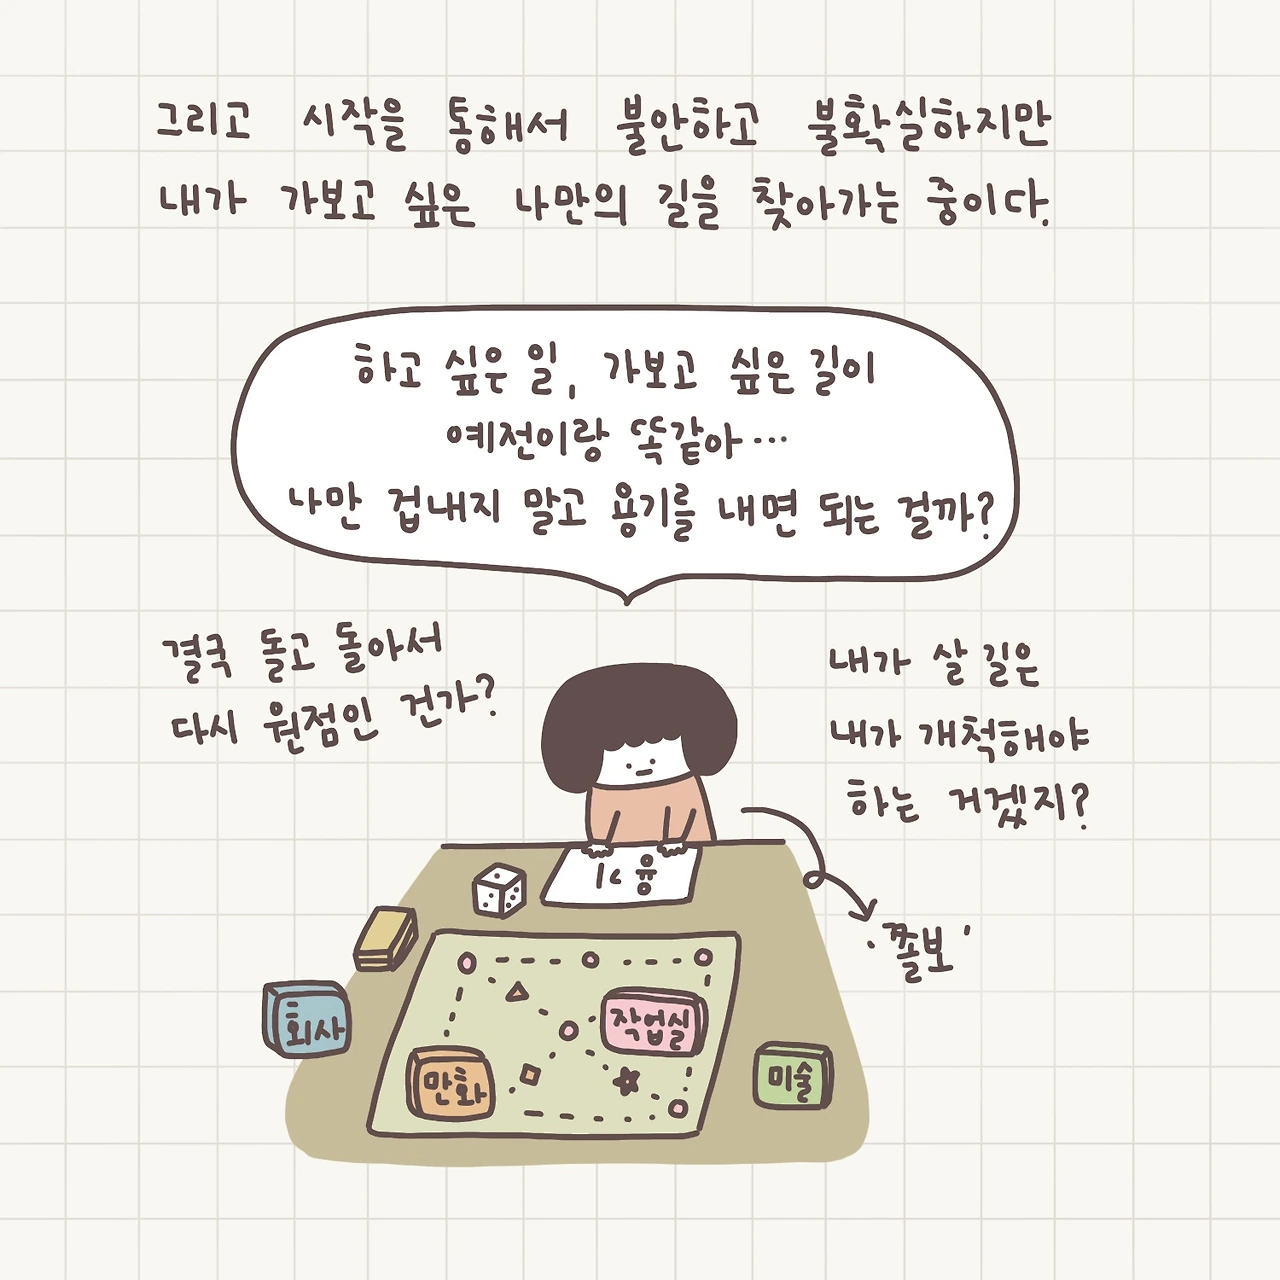 그리고 시작을 통해서 불안하고 불확실하지만
내가 가보고 싶은 나만의 길을 찾아가는 중이다.
하고 싶은 일, 가보고 싶은 길이
예전이랑 똑같아...
나만 겁내지 말고 용기를 내면 되는 걸까?
결국 돌고 돌아서
다시 원점인 건가?
내가 살 길은
내가 개척해야
하는 거겠지?
'쫄보'
회사
만화
작업실
미술